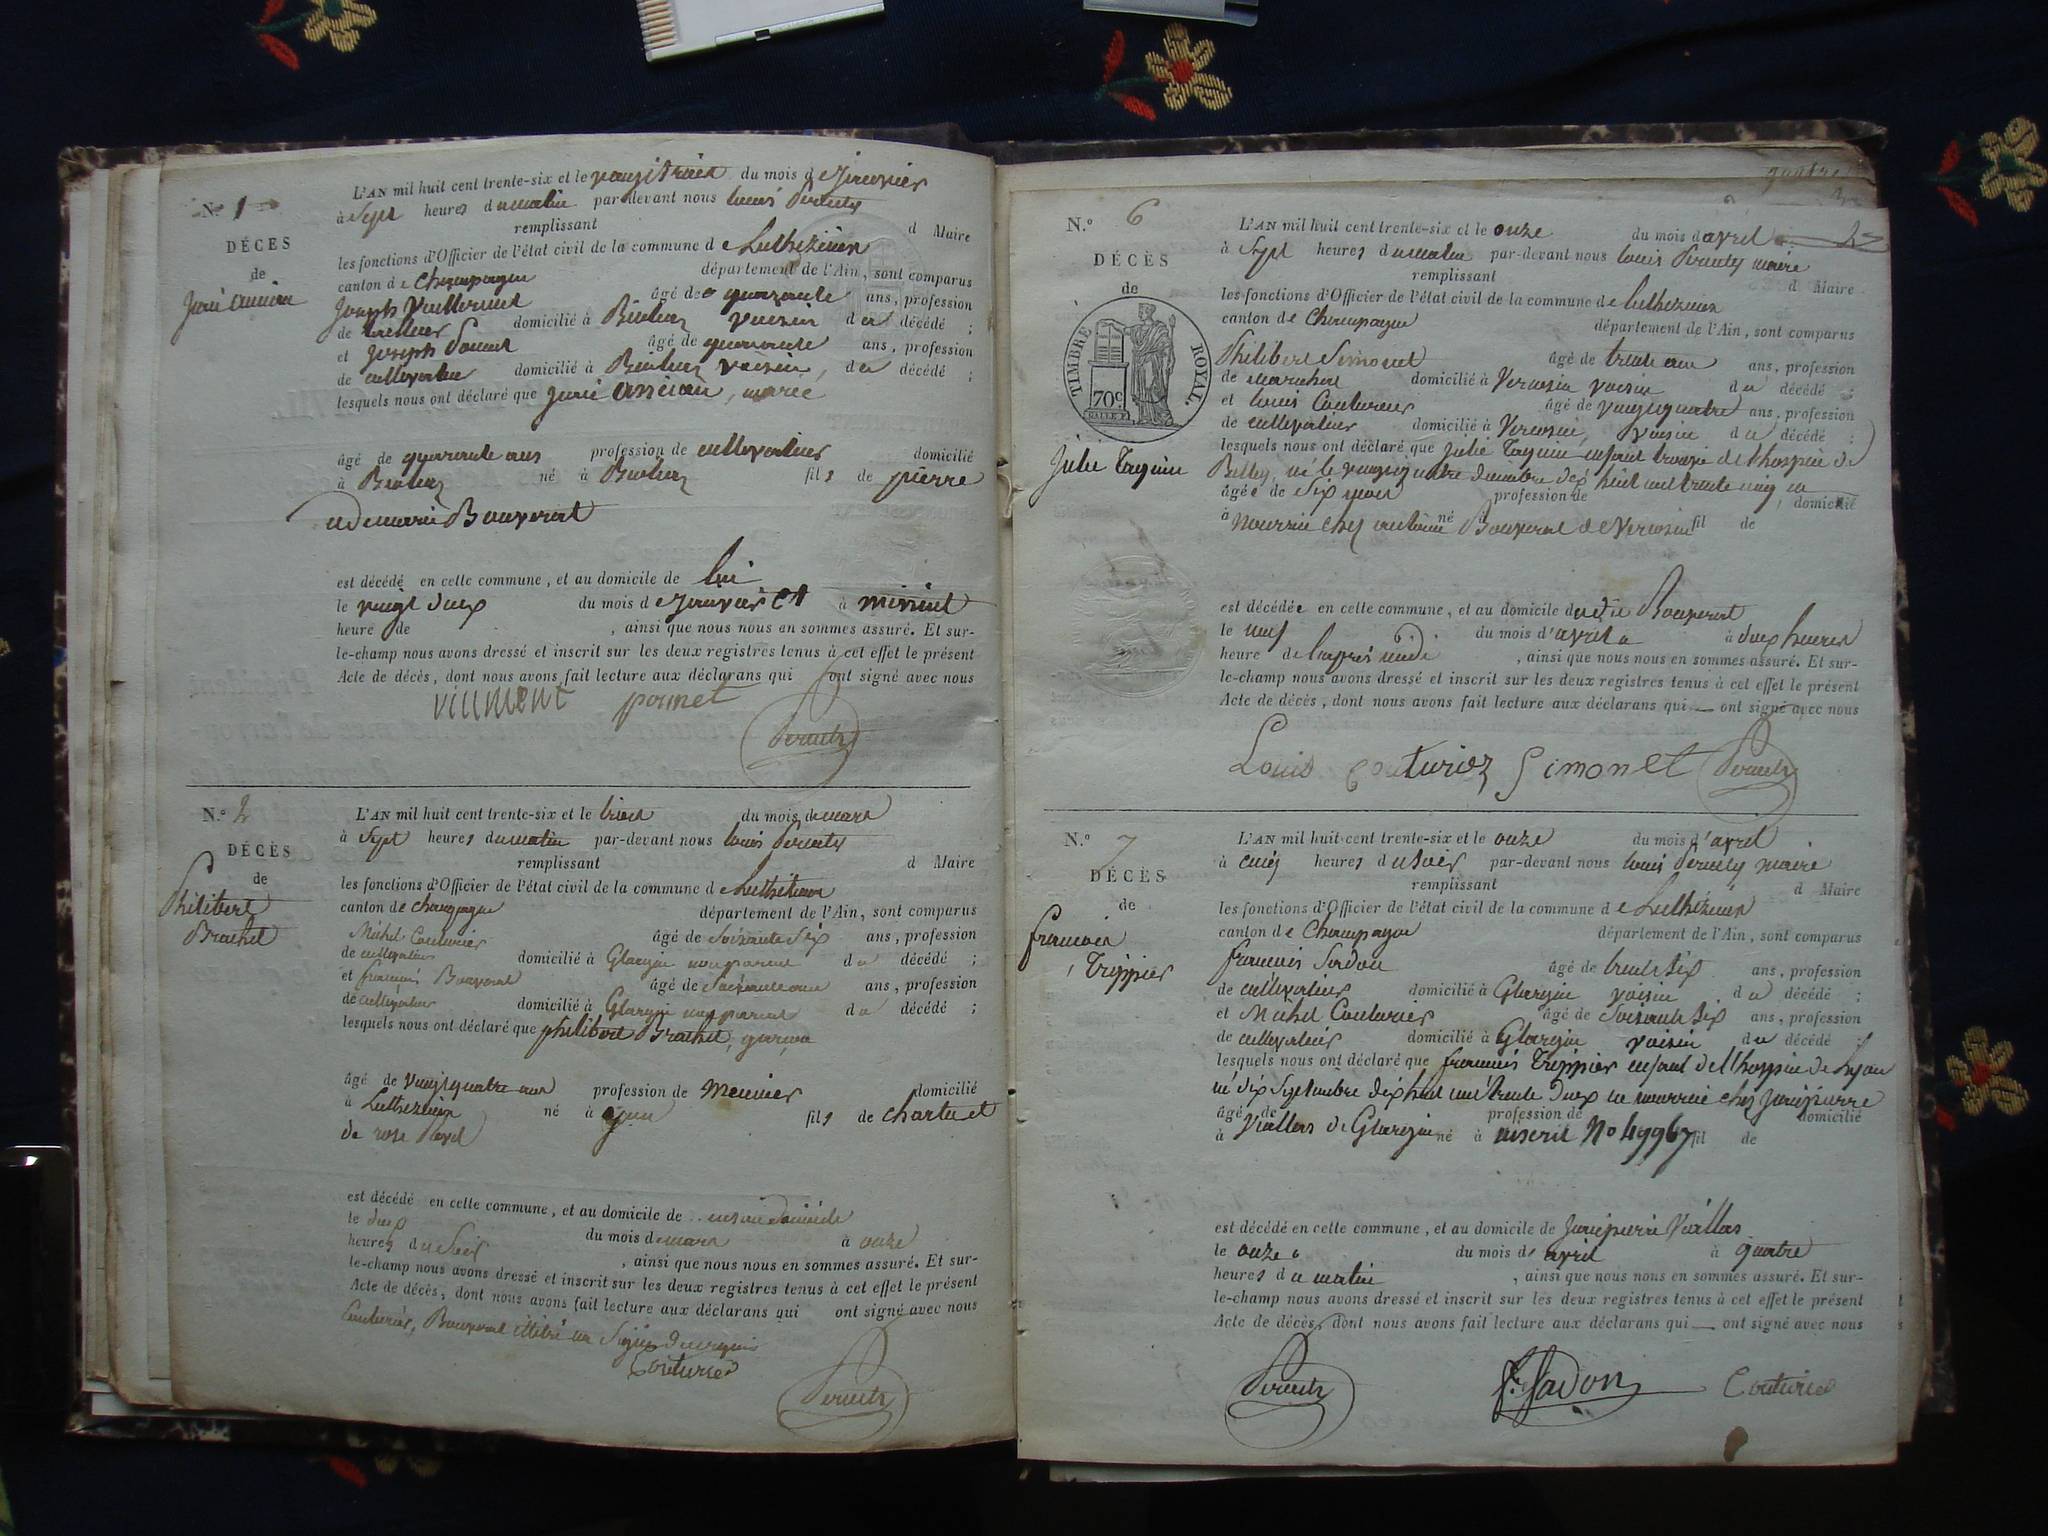 N.º 1
DÉCES
de
L'AN mil huit cent trente-six et le vingt trois du mois de Janvier
à Sept heures du matin par-devant nous Louis Perucly
remplissant d Maire
les fonctions d'Officier de l'état civil de la commune de Luthezieu
canton de Champagne département de l'Ain, sont comparus
Joseph Vuillermet âgé de quarante ans, profession
de tailleur domicilié à voisin du décédé ;
et Joseph Ponnet âgé de quarante ans, profession
de cultivateur domicilié à voisin, du décédé ;
lesquels nous ont déclaré que , marié
âgé de quarante ans profession de cultivateur domicilié
à né à fils de pierre
et de marie Bouverat
est décédé en cette commune, et au domicile de lui
le vingt deux du mois de Janvier à minuit
heure de , ainsi que nous nous en sommes assuré. Et sur-
le-champ nous avons dressé et inscrit sur les deux registres tenus à cet effet le présent
Acte de décès, dont nous avons fait lecture aux déclarans qui ont signé avec nous
ponnet
N.º 2
DÉCÈS
de
Philibert
Brachet
L'AN mil huit cent trente-six et le trois du mois de mars
à Sept heures du matin par-devant nous Louis Perucly
remplissant d Maire
les fonctions d'Officier de l'état civil de la commune de Luthézieu
canton de champagne département de l'Ain, sont comparus
Michel Couturier âgé de Soixante Six ans, profession
de cultivateur domicilié à Glargin non parent du décédé ;
et françois Bouverat âgé de Soixante ans, profession
de cultivateur domicilié à Glargin non parent du décédé ;
lesquels nous ont déclaré que philibert Brachet, garçon
âgé de vingt quatre ans profession de Meunier domicilié
à Luthezieu né à fils de
de rose
est décédé en cette commune, et au domicile de en son domicile
le deux du mois de mars à onze
heures du Soir , ainsi que nous nous en sommes assuré. Et sur-
le-champ nous avons dressé et inscrit sur les deux registres tenus à cet effet le présent
Acte de décès, dont nous avons fait lecture aux déclarans qui ont signé avec nous
Couturier, Bouverat illitré
Couturier
N.º 6
DÉCÈS
de
TIMBRE ROYAL.
70c
Julie Taquin
L'AN mil huit cent trente-six et le onze du mois d'avril
à Sept heures du matin par-devant nous Louis Perucly maire
remplissant d Maire
les fonctions d'Officier de l'état civil de la commune de Luthezieu
canton de Champagne département de l'Ain, sont comparus
Philibert Simonet âgé de trente ans, profession
de marechal domicilié à voisin du décédé ;
et Louis Couturier âgé de vingt quatre ans, profession
de cultivateur domicilié à voisin du décédé ;
lesquels nous ont déclaré que Julie Taquin enfant trouvé de l'hospice de
Belley, né le vingt quatre décembre dix huit cent trente cinq
âgée de Six mois profession de , domicilié
à nourrie chez antoine né Bouverat de fil de
est décédée en cette commune, et au domicile dudit Bouverat
le neuf du mois d'avril à deux heures
heure de l'aprés midi , ainsi que nous nous en sommes assuré. Et sur-
le-champ nous avons dressé et inscrit sur les deux registres tenus à cet effet le présent
Acte de décès, dont nous avons fait lecture aux déclarans qui ont signé avec nous
Louis Couturier Simonet
N.º 7
DÉCÈS
de
francois
Trippier
L'AN mil huit cent trente-six et le onze du mois d'avril
à cinq heures du soir par-devant nous Louis Perucly maire
remplissant d Maire
les fonctions d'Officier de l'état civil de la commune de Luthézieu
canton de Champagne département de l'Ain, sont comparus
francois Sadon âgé de trente Six ans, profession
de cultivateur domicilié à Glargin voisin du décédé ;
et Michel Couturier âgé de Soixante Six ans, profession
de cultivateur domicilié à Glargin voisin du décédé ;
lesquels nous ont déclaré que francois Trippier enfant de l'hospice de Lyon
né dix Septembre dix huit cent trente deux en nourrice chez Jean pierre
âgé de profession de domicilié
à Viallas de Glargin né à inscrit No 49967 fil de
est décédé en cette commune, et au domicile de Jean pierre Viallas
le onze du mois d'avril à quatre
heures du matin , ainsi que nous nous en sommes assuré. Et sur-
le-champ nous avons dressé et inscrit sur les deux registres tenus à cet effet le présent
Acte de décès, dont nous avons fait lecture aux déclarans qui ont signé avec nous
Sadon Couturier